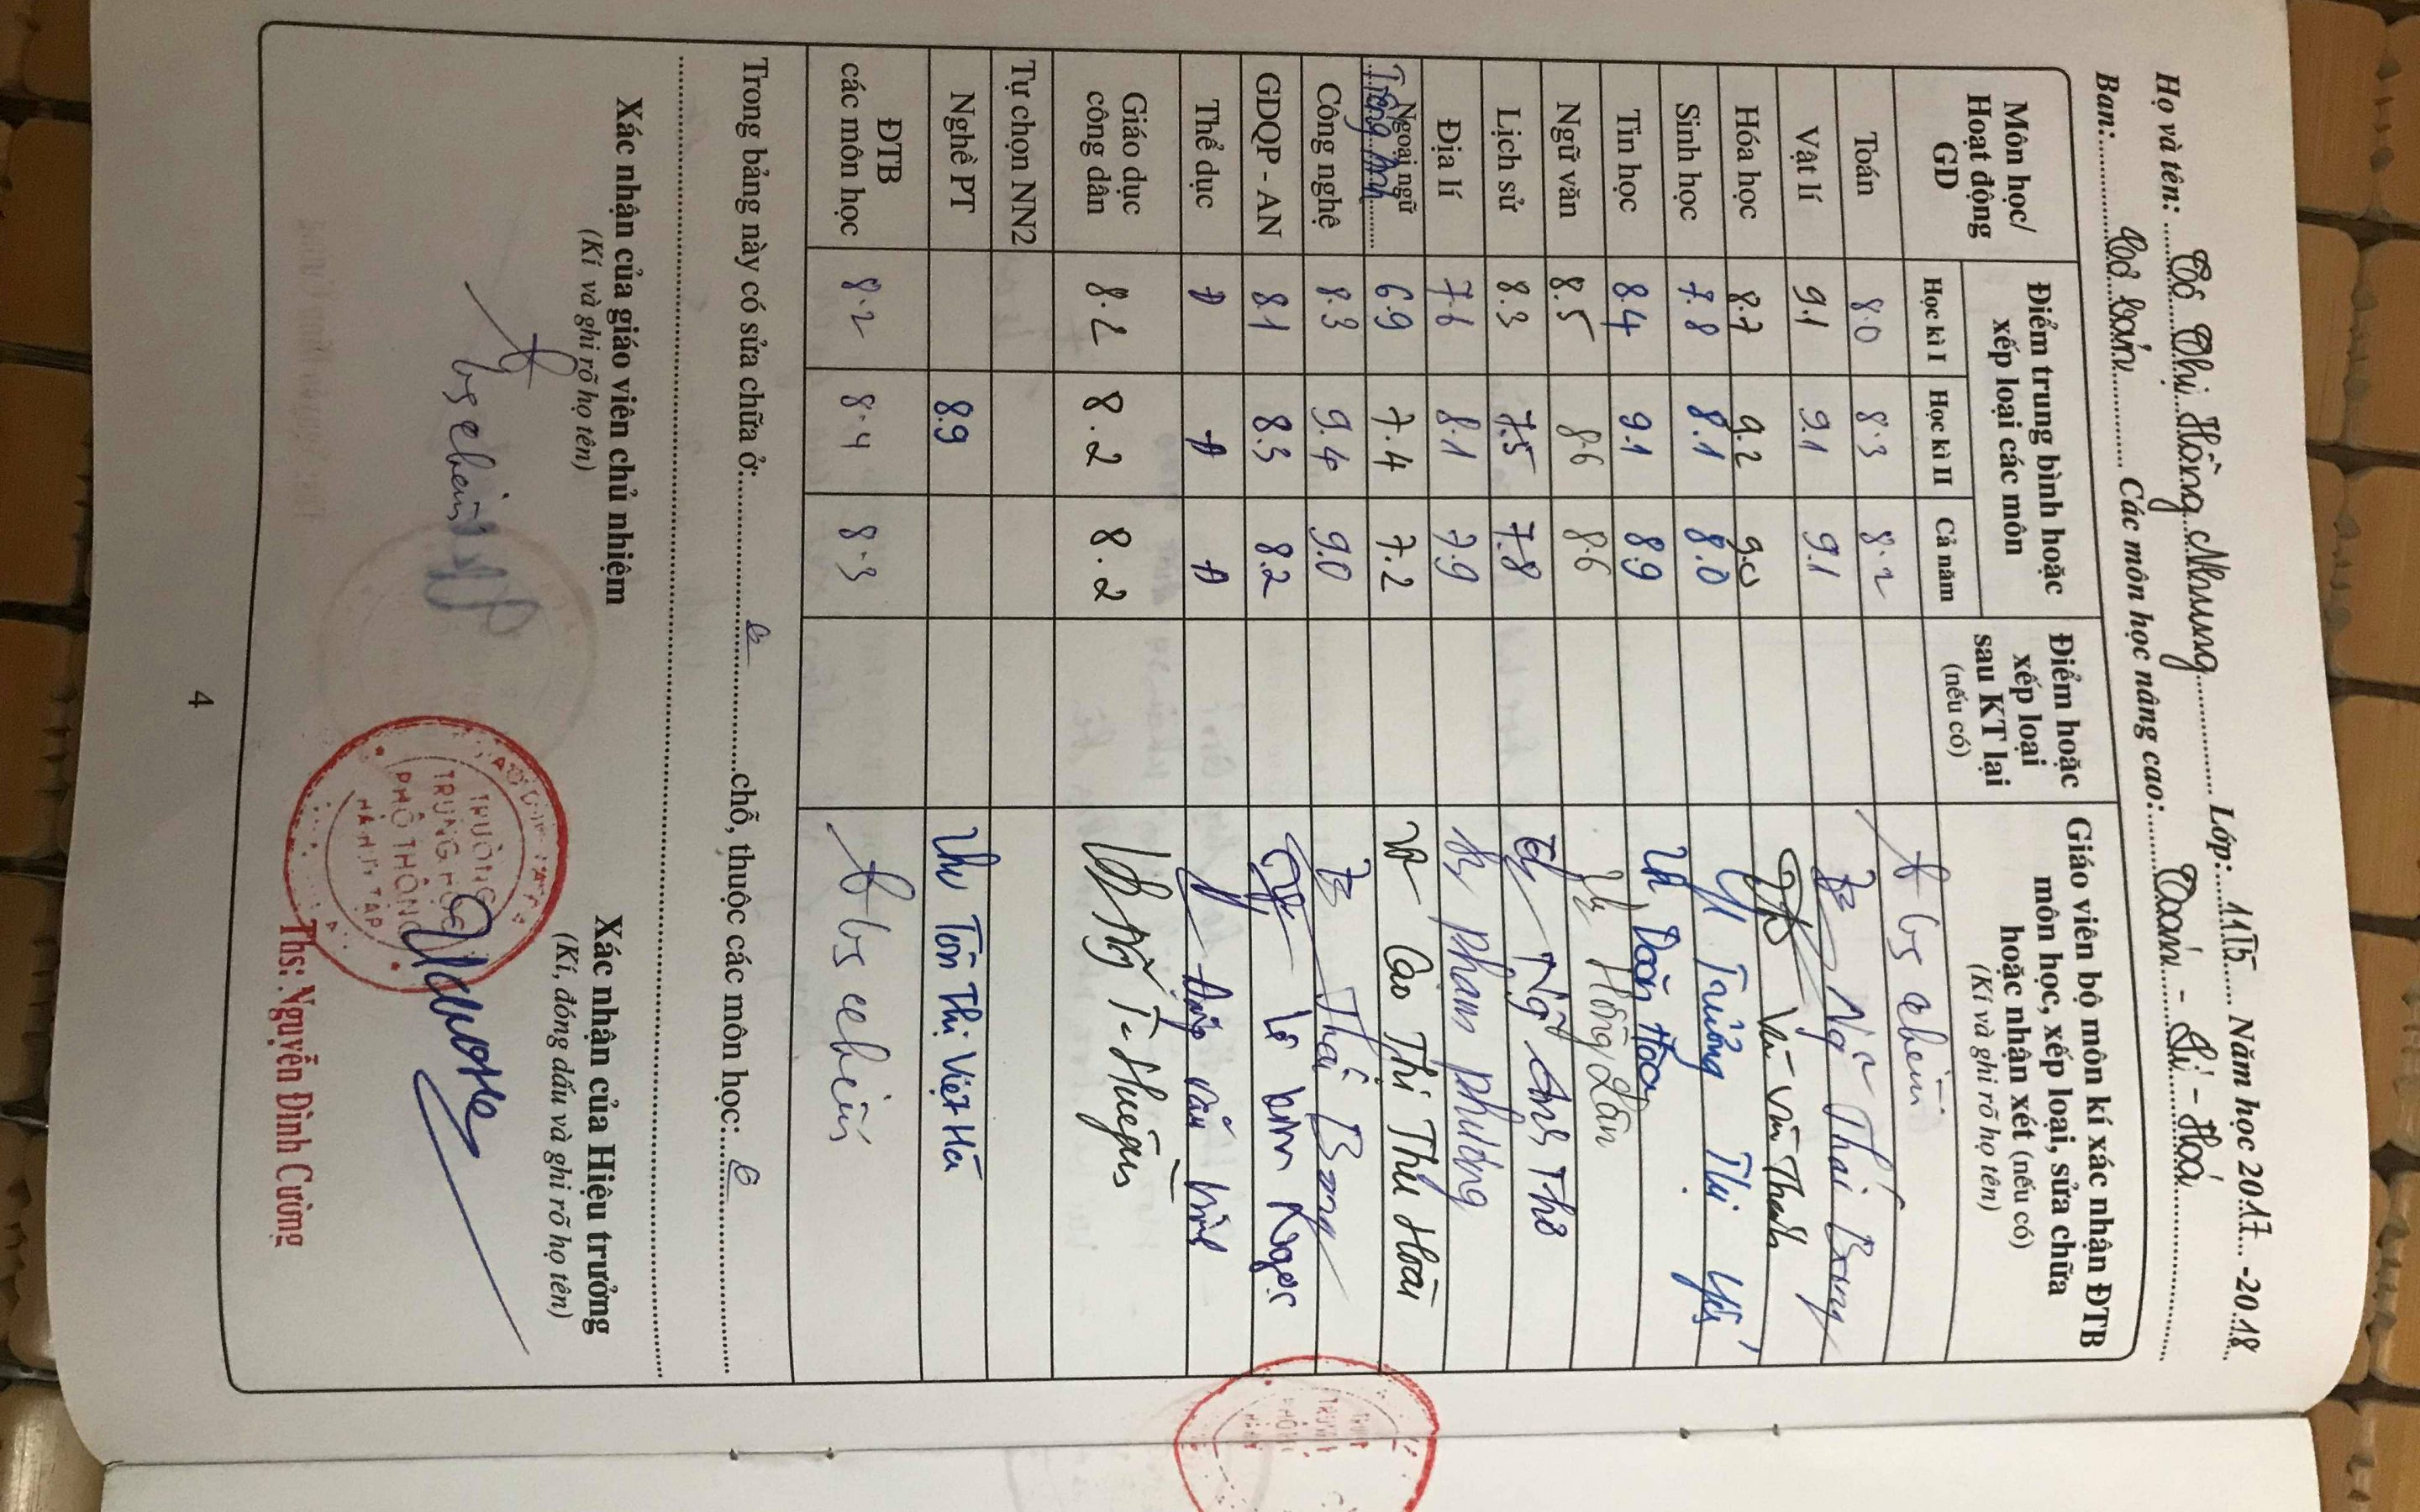 Họ và tên: ... Thị Hồng Nhung Lớp: 11T5 Năm học 2017 - 2018
Ban: Cơ bản Các môn học nâng cao: Toán - Lí - Hoá
Môn học/ Hoạt động GD | Điểm trung bình hoặc xếp loại các môn | Điểm hoặc xếp loại sau KT lại (nếu có) | Giáo viên bộ môn kí xác nhận ĐTB môn học, xếp loại, sửa chữa hoặc nhận xét (nếu có) (Kí và ghi rõ họ tên)
Học kì I | Học kì II | Cả năm
Toán 8.0 8.3 8.2
Vật lí 9.1 9.1 9.1 Ng~ Thái Bang
Hóa học 8.7 9.2 9.0 Văn Thanh
Sinh học 7.8 8.1 8.0 Trương Thị Yến
Tin học 8.4 9.1 8.9 Doãn Hoa
Ngữ văn 8.5 8.6 8.6 Hồng Lân
Lịch sử 8.3 7.5 7.8 Ng~ Anh Thơ
Địa lí 7.6 8.1 7.9 Phan Phương
Ngoại ngữ Tiếng Anh 6.9 7.4 7.2 Cao Thị Thu Hoài
Công nghệ 8.3 9.4 9.0 Thái Bang
GDQP - AN 8.1 8.3 8.2 Lê Kim Ngọc
Thể dục Đ Đ Đ Đặng Văn
Giáo dục công dân 8.2 8.2 8.2 Ng~ T- Huyền
Tự chọn NN2
Nghề PT 8.9 Tôn Thị Việt Hà
ĐTB các môn học 8.2 8.4 8.3
Trong bảng này có sửa chữa ở: chỗ, thuộc các môn học:
Xác nhận của giáo viên chủ nhiệm
(Kí và ghi rõ họ tên)
Xác nhận của Hiệu trưởng
(Kí, đóng dấu và ghi rõ họ tên)
TRƯỜNG
TRUNG HỌC
PHỔ THÔNG
HÀ HUY TẬP
Ths: Nguyễn Đình Cường
4